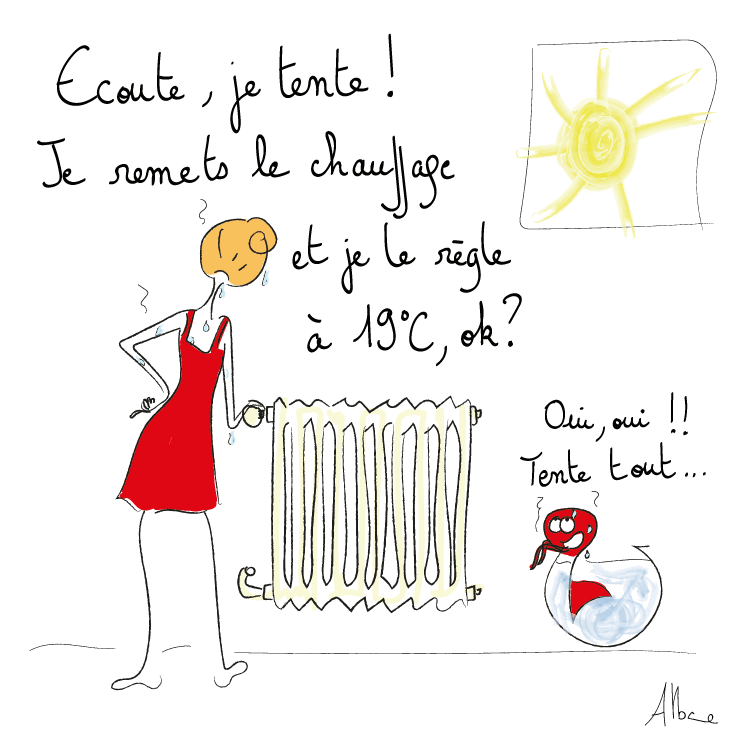 Ecoute, je tente !
Je remets le chauffage
et je le règle
à 19°C, ok?
Oui, oui !!
Tente tout...